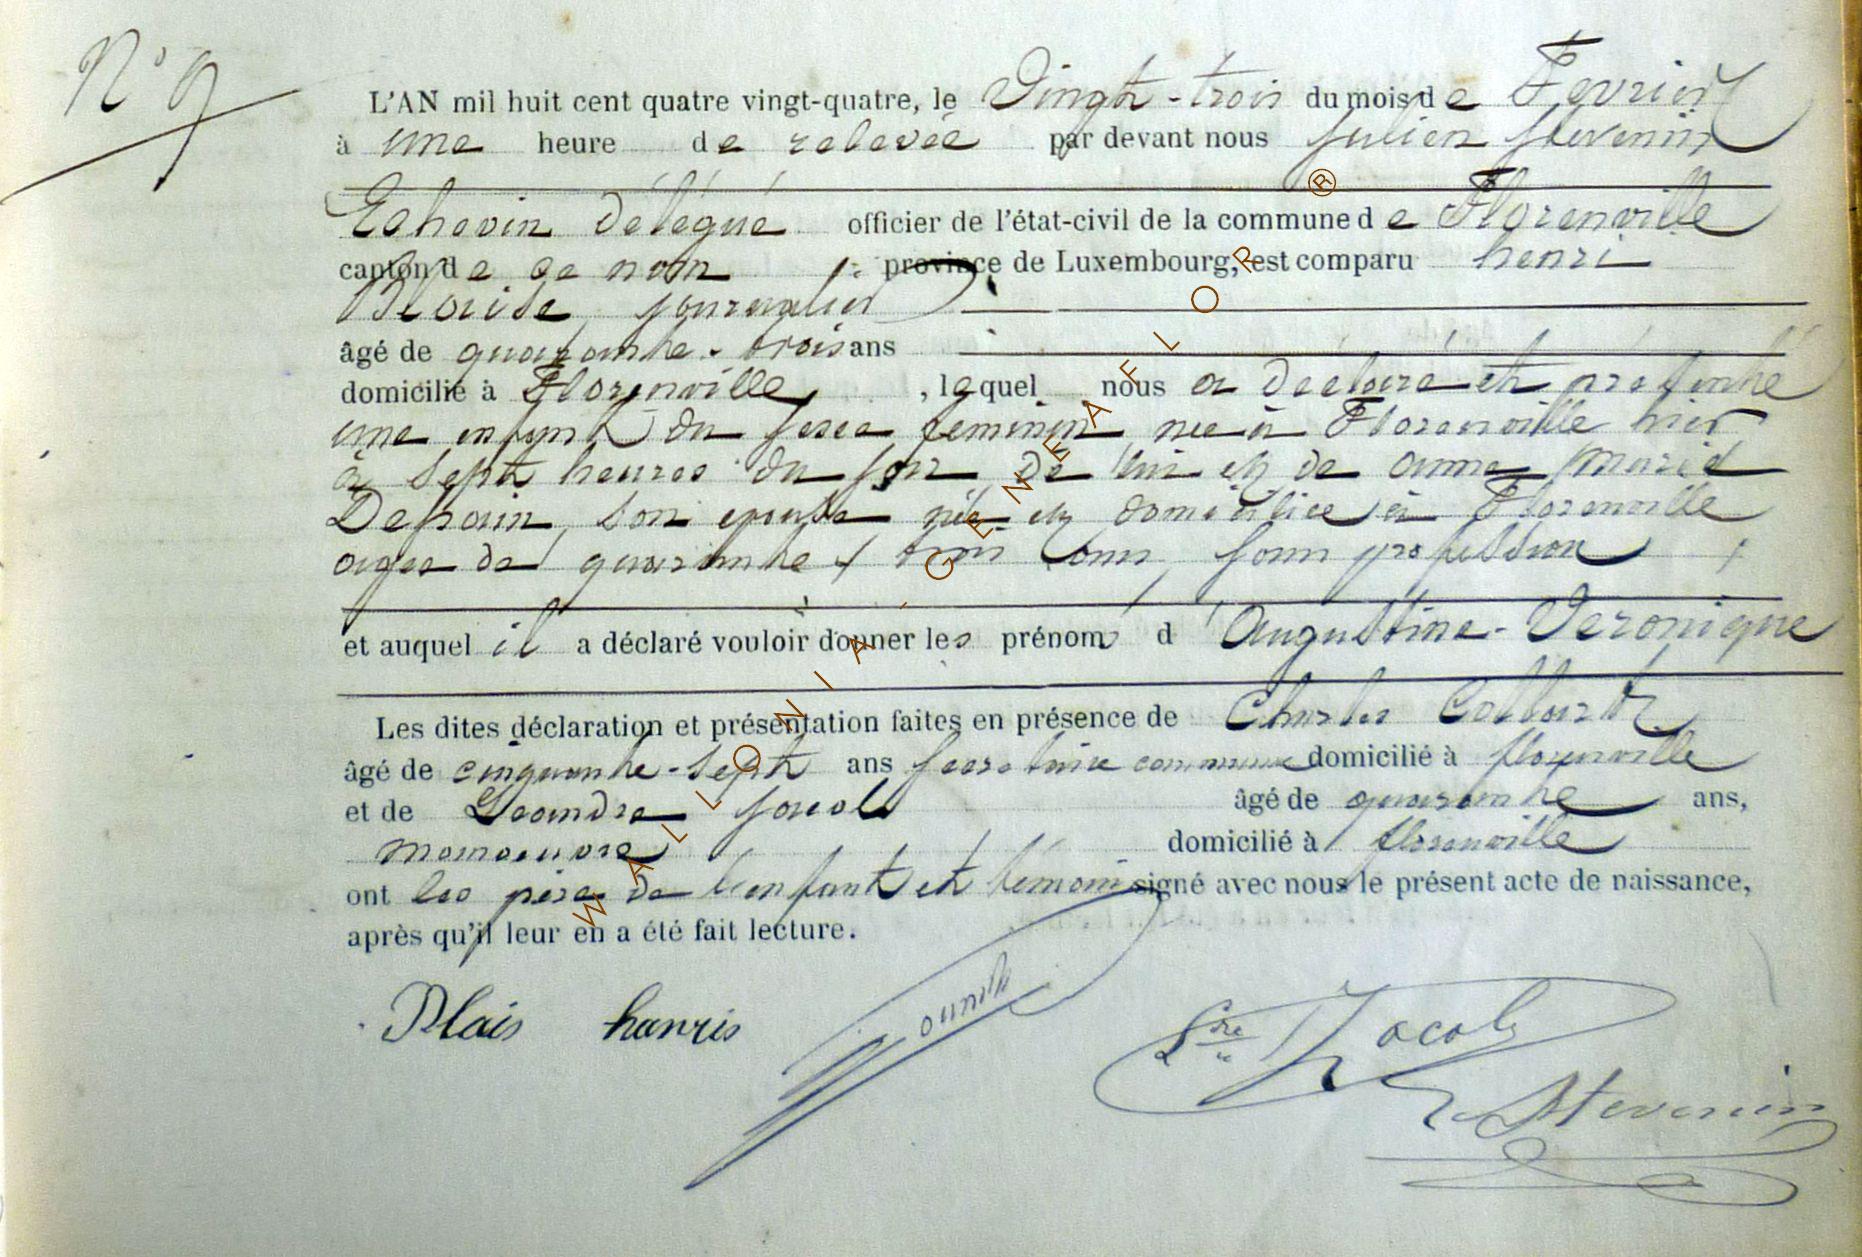 N° 9
L'AN mil huit cent quatre vingt-quatre, le Vingt-trois du mois de Fevrier
à une heure de relevée par devant nous Julien Stevenin
Echevin délégué officier de l'état-civil de la commune de Florenville
canton de ce nom province de Luxembourg, est comparu henri
Blaise, journalier
âgé de quarante-trois ans
domicilié à Florenville, lequel nous a déclaré et présenté
une enfant du sexe féminin née à Florenville hier
à sept heures du soir de lui et de anne Marie
Depoin, son épouse née et domicilice à Florenville
agée de quarante trois ans, sans profession
et auquel il a déclaré vouloir donner les prénoms d'Augustine-Veronique
Les dites déclaration et présentation faites en présence de Charles Collard
âgé de cinquante-sept ans secretaire communal domicilié à florenville
et de Leandre Jacob âgé de quarante ans,
manoeuvre domicilié à florenville
ont les père de l'enfant et témoins signé avec nous le présent acte de naissance,
après qu'il leur en a été fait lecture.
Blais hanris
Jacob
Stevenin
WALLONIA - GENEAFLOR ®